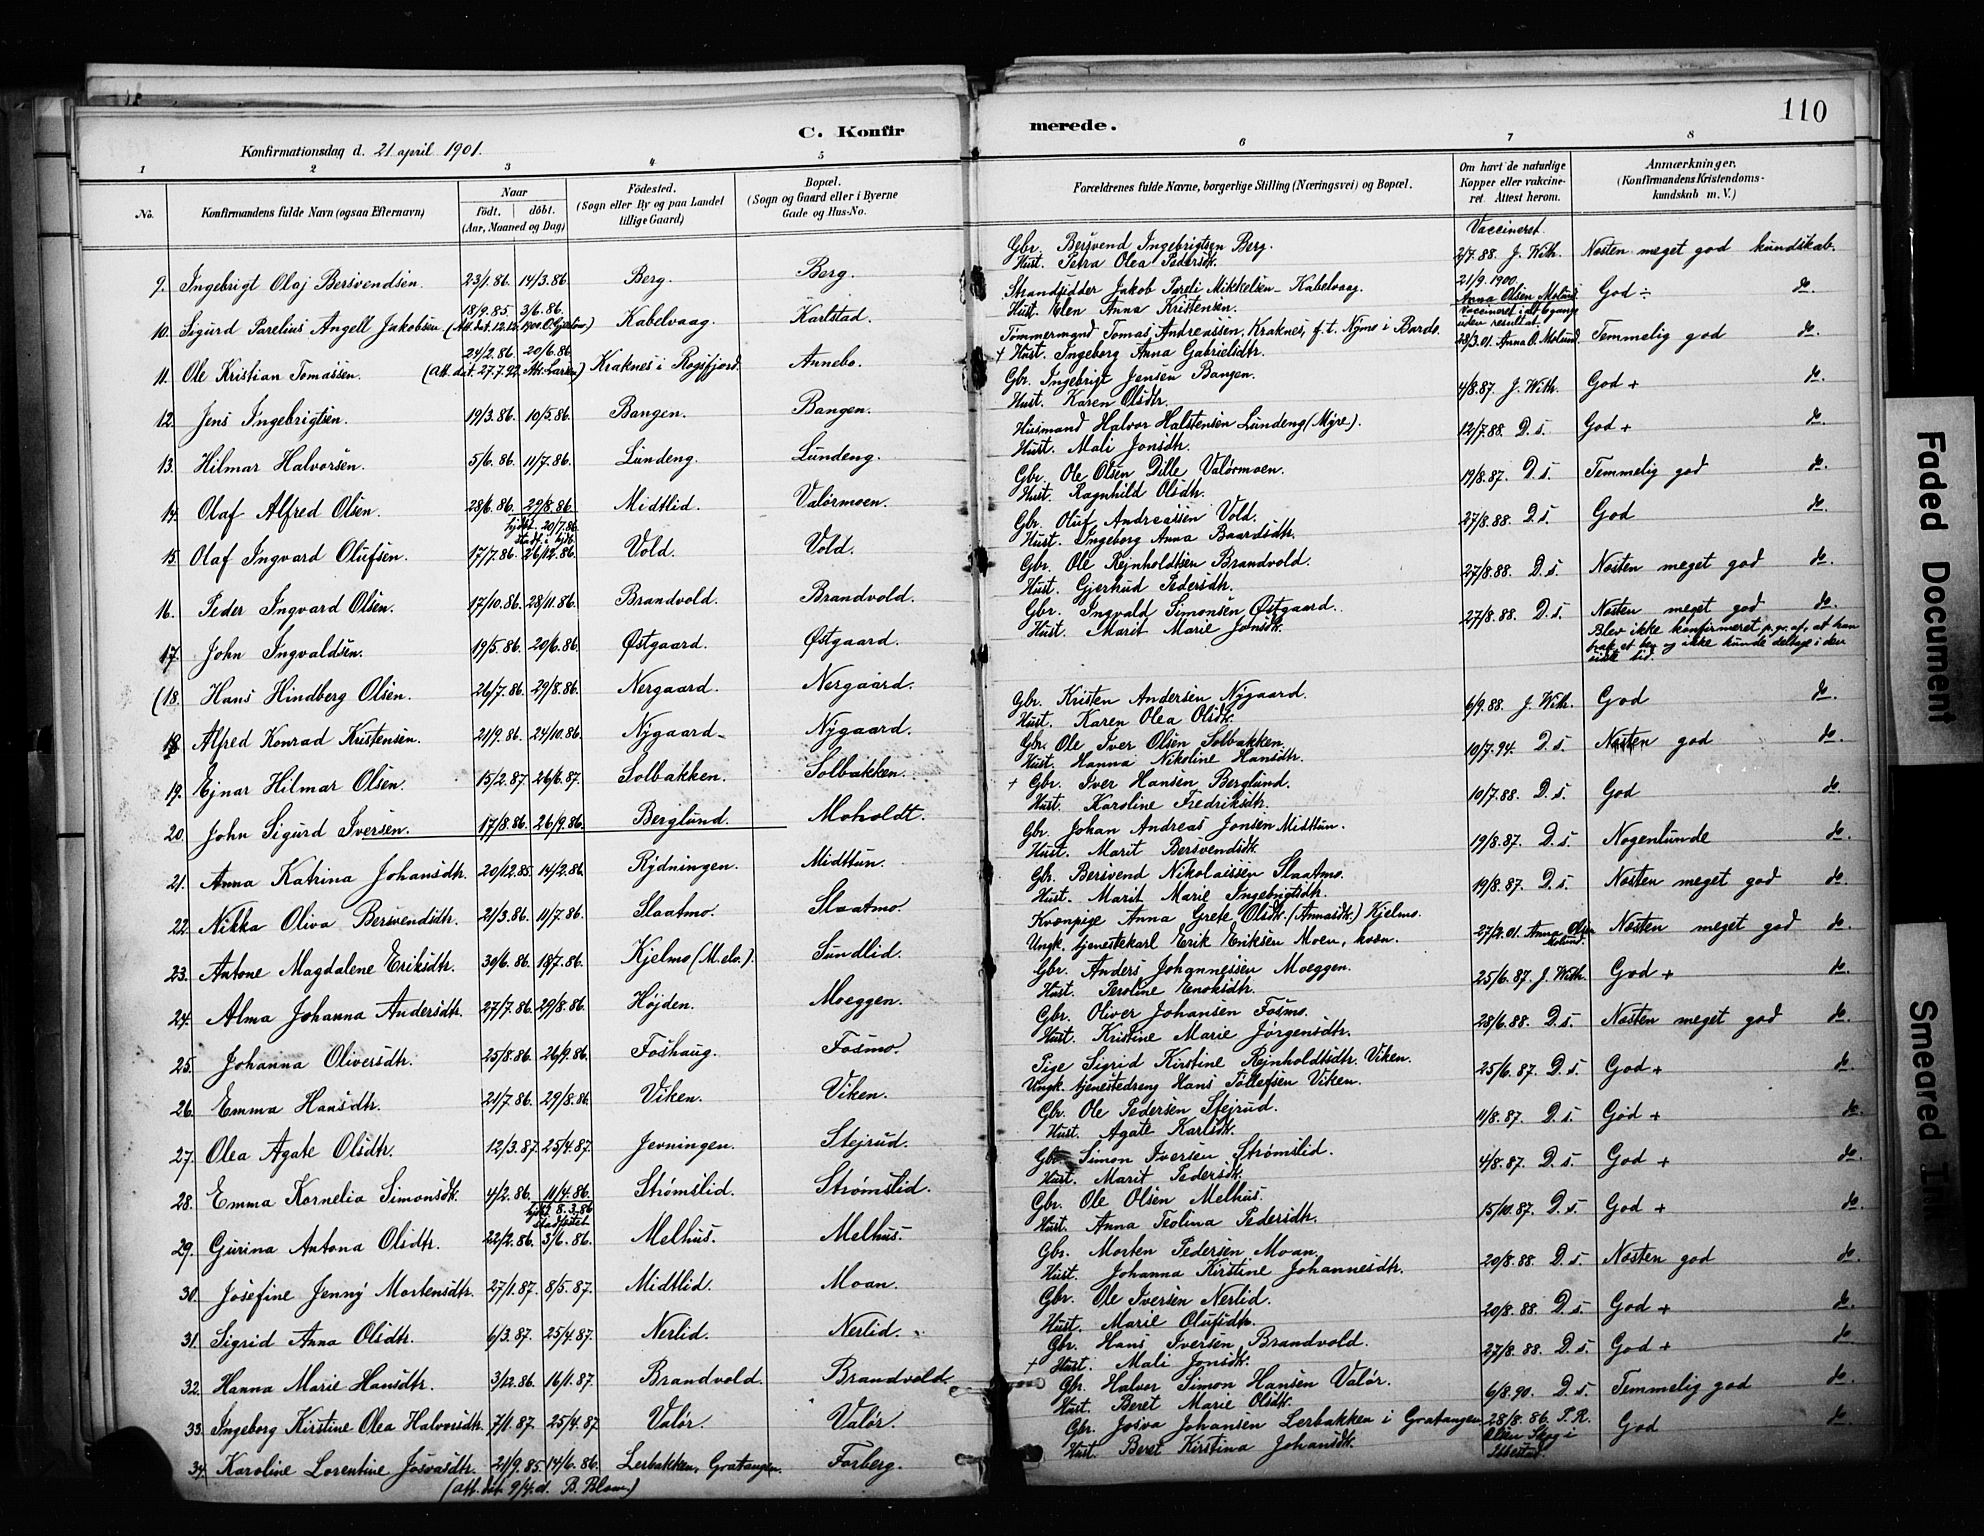 C. Konfirmerede.
110
Konfirmationsdag d. 21 april 1901.
1 2 3 4 5 6 7 8
No.
Konfirmandens fulde Navn (ogsaa Efternavn)
Naar
født. | døbt.
(Aar, Maaned og Dag)
Fødested.
(Sogn eller By og paa Landet
tillige Gaard)
Bopæl.
(Sogn og Gaard eller i Byerne
Gade og Hus-No.
Forældrenes fulde Navne, borgerlige Stilling (Næringsvei) og Bopæl.
Om havt de naturlige
Kopper eller vaccine-
ret. Attest herom.
Anmærkninger.
(Konfirmandens Kristendoms-
kundskab m. V.)
Vaccineret.
9. Ingebrigt Olaj Bersvendsen. 23/1.86. 14/3.86. Berg. Berg. Gbr. Bersvend Ingebrigtsen Berg. 2/7.88. J. With. Næsten meget god kundskab.
Hust. Petra Olea Pedersdtr.
10. Sigurd Parelius Angell Jakobsen 18/9.85. 3/6.86. Kabelvaag. Karlstad. Strandsidder Jakob Pareli Mikkelsen - Kabelvaag. 21/9.1900. Anna Olsen Molund God ÷ do.
Hust. Elen Anna Kristensen. Vaccineret i alt 6 gange uden resultat.
11. Ole Kristian Tomassen. 24/2.86. 20/6.86. Kraknes i Rogsfjord. Annebo. Tømmermand Tomas Andreassen, Kraknes, f.t. Nymo i Bardo. 28/3.01. Anna O. Molund. Temmelig god do.
(Att. dat. 27.7.92. Larsen) † Hust. Ingeborg Anna Gabrielsdtr.
12. Jens Ingebrigtsen. 19/3.86. 10/5.86. Bangen. Bangen. Gbr. Ingebrigt Jensen Bangen. 4/8.87. J. With. God + do.
Hust. Karen Olsdtr.
13. Hilmar Halvorsen. 5/6.86. 11/7.86. Lundeng. Lundeng. Husmand Halvor Halstensen Lundeng (Myre). 12/7.88. D. s. God + do.
Hust. Mali Jonsdtr.
14. Olaf Alfred Olsen. 28/6.86. 29/8.86. Midtlid. Valørmoen. Gbr. Ole Olsen Dille Valørmoen. 19/8.87. D. s. Temmelig god do.
Hust. Ragnhild Olsdtr.
hjdbt. 20/7.86. stadf. i hjdt.
15. Olaf Ingvard Olufsen. 17/7.86. 26/12.86. Vold. Vold. Gbr. Oluf Andreassen Vold. 27/8.88. D. s. God do.
Hust. Ingeborg Anna Baardsdtr.
16. Peder Ingvard Olsen. 17/10.86. 28/11.86. Brandvold. Brandvold. Gbr. Ole Rejnholdtsen Brandvold. 27/8.88. D. s. Næsten meget god do.
Hust. Gjertrud Pedersdtr.
17. John Ingvaldsen. 19/5.86. 20/6.86. Østgaard. Østgaard. Gbr. Ingvald Simonsen Østgaard. 27/8.88. D. s. Næsten meget god do.
Hust. Marit Marie Jonsdtr.
(18. Hans Hindberg Olsen. 26/7.86. 29/8.86. Nergaard. Nergaard. Blev ikke konfirmeret p. gr. af, at han
brak et ben og ikke kunde deltage i den
siste tid.
18. Alfred Konrad Kristensen. 21/9.86. 24/10.86. Nygaard. Nygaard. Gbr. Kristen Andersen Nygaard. 6/9.88. J. With. God do.
Hust. Karen Olea Olsdtr.
19. Ejnar Hilmar Olsen. 15/2.87. 26/6.87. Solbakken. Solbakken. Gbr. Ole Iver Olsen Solbakken. 10/7.94. D. s. Næsten god do.
Hust. Hanna Nikoline Hansdtr.
20. John Sigurd Iversen. 17/8.86. 26/9.86. Berglund. Moholdt. † Gbr. Iver Hansen Berglund. 10/7.88. D. s. God do.
Hust. Karoline Fredriksdtr.
21. Anna Katrina Johansdtr. 20/12.85. 14/2.86. Rydningen. Midttun. Gbr. Johan Andreas Jonsen Midttun. 19/8.87. D. s. Nogenlunde do.
Hust. Marit Bersvendsdtr.
22. Nikka Oliva Bersvendsdtr. 21/3.86. 11/7.86. Slaatmo. Slaatmo. Gbr. Bersvend Nikolaissen Slaatmo. 19/8.87. D. s. Næsten meget god do.
Hust. Marit Marie Ingebrigtsdtr.
23. Antone Magdalene Eriksdtr. 30/6.86. 18/7.86. Kjelmo (M.elv.). Sundlid. Kvænpige Anna Grete Olsdtr. (Annasdtr.) Kjelmo. 27/2.01. Anna Olsen Molund. Næsten meget god do.
Ungk. tjenestekarl Erik Eriksen Moen, kvæn.
24. Alma Johanna Andersdtr. 27/7.86. 29/8.86. Højden. Moeggen. Gbr. Anders Johannessen Moeggen. 25/6.87. J. With. God + do.
Hust. Peroline Enoksdtr.
25. Johanna Oliversdtr. 25/8.86. 26/9.86. Foshaug. Fosmo. Gbr. Oliver Johansen Fosmo. 28/6.88. D. s. Næsten meget god do.
Hust. Kristine Marie Jørgensdtr.
26. Emma Hansdtr. 21/7.86. 29/8.86. Viken. Viken. Pige Sigrid Kirstine Rejnholdtsdtr. Viken. 25/6.87. D. s. God + do.
Ungk. tjenestedreng Hans Tollefsen Viken.
27. Olea Agate Olsdtr. 12/3.87. 25/4.87. Jevningen. Stejrud. Gbr. Ole Pedersen Stejrud. 11/8.87. D. s. God + do.
Hust. Agate Karlsdtr.
28. Emma Kornelia Simonsdtr. 4/2.86. 11/4.86. Strømslid. Strømslid. Gbr. Simon Iversen Strømslid. 4/8.87. D. s. God + do.
Hust. Marit Pedersdtr.
hjdbt. 8.3.86 stadfæstet
29. Gurina Antona Olsdtr. 22/2.86. 3/6.86. Melhus. Melhus. Gbr. Ole Olsen Melhus. 15/10.87. D. s. God + do.
Hust. Anna Teolina Pedersdtr.
30. Josefine Jenny Mortensdtr. 27/1.87. 8/5.87. Midtlid. Moan. Gbr. Morten Pedersen Moan. 20/8.88. D. s. Næsten god do.
Hust. Johanna Kirstine Johannesdtr.
31. Sigrid Anna Olsdtr. 6/3.87. 25/4.87. Nerlid. Nerlid. Gbr. Ole Iversen Nerlid. 20/8.88. D. s. God + do.
Hust. Marie Olufsdtr.
32. Hanna Marie Hansdtr. 3/12.86. 16/1.87. Brandvold. Brandvold. Gbr. Hans Iversen Brandvold. 27/8.88. D. s. God + do.
† Hust. Mali Jonsdtr.
33. Ingeborg Kirstine Olea Halvorsdtr. 7/1.87. 25/4.87. Valør. Valør. Gbr. Halvor Simon Hansen Valør. 6/8.90. D. s. Temmelig god do.
Hust. Beret Marie Olsdtr.
34. Karoline Lorentine Josvasdtr. 21/9.85. 14/6.86. Lerbakken, Gratangen. Forberg. Gbr. Josva Johansen Lerbakken i Gratangen. 28/8.86. P.R. Olsen i Ibbestad. God do.
Hust. Beret Kirstina Johansdtr.
(Att. dat. 9/4. d. B. Blom.)
Faded Document
Smeared Ink